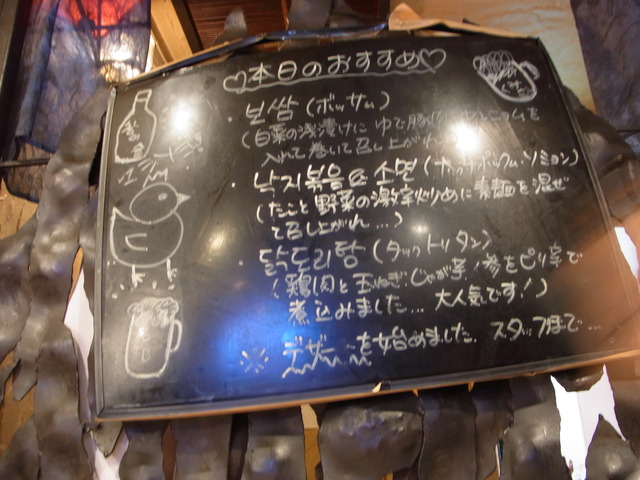 ♡本日のおすすめ♡
・보쌈 (ボッサム)
(白菜の浅漬けに ゆで豚肉 を
入れて巻いて召し上がれ
・낙지볶음 소면 (ナッチポックム・ソミョン)
(たこと野菜の激辛炒めに素麺を混ぜ
て召し上がれ...)
・닭도리탕 (タットリタン)
(鶏肉と玉ねぎ・じゃが芋・人参をピリ辛で
煮込みました... 大人気です!)
※ デザートを始めました。スタッフまで...